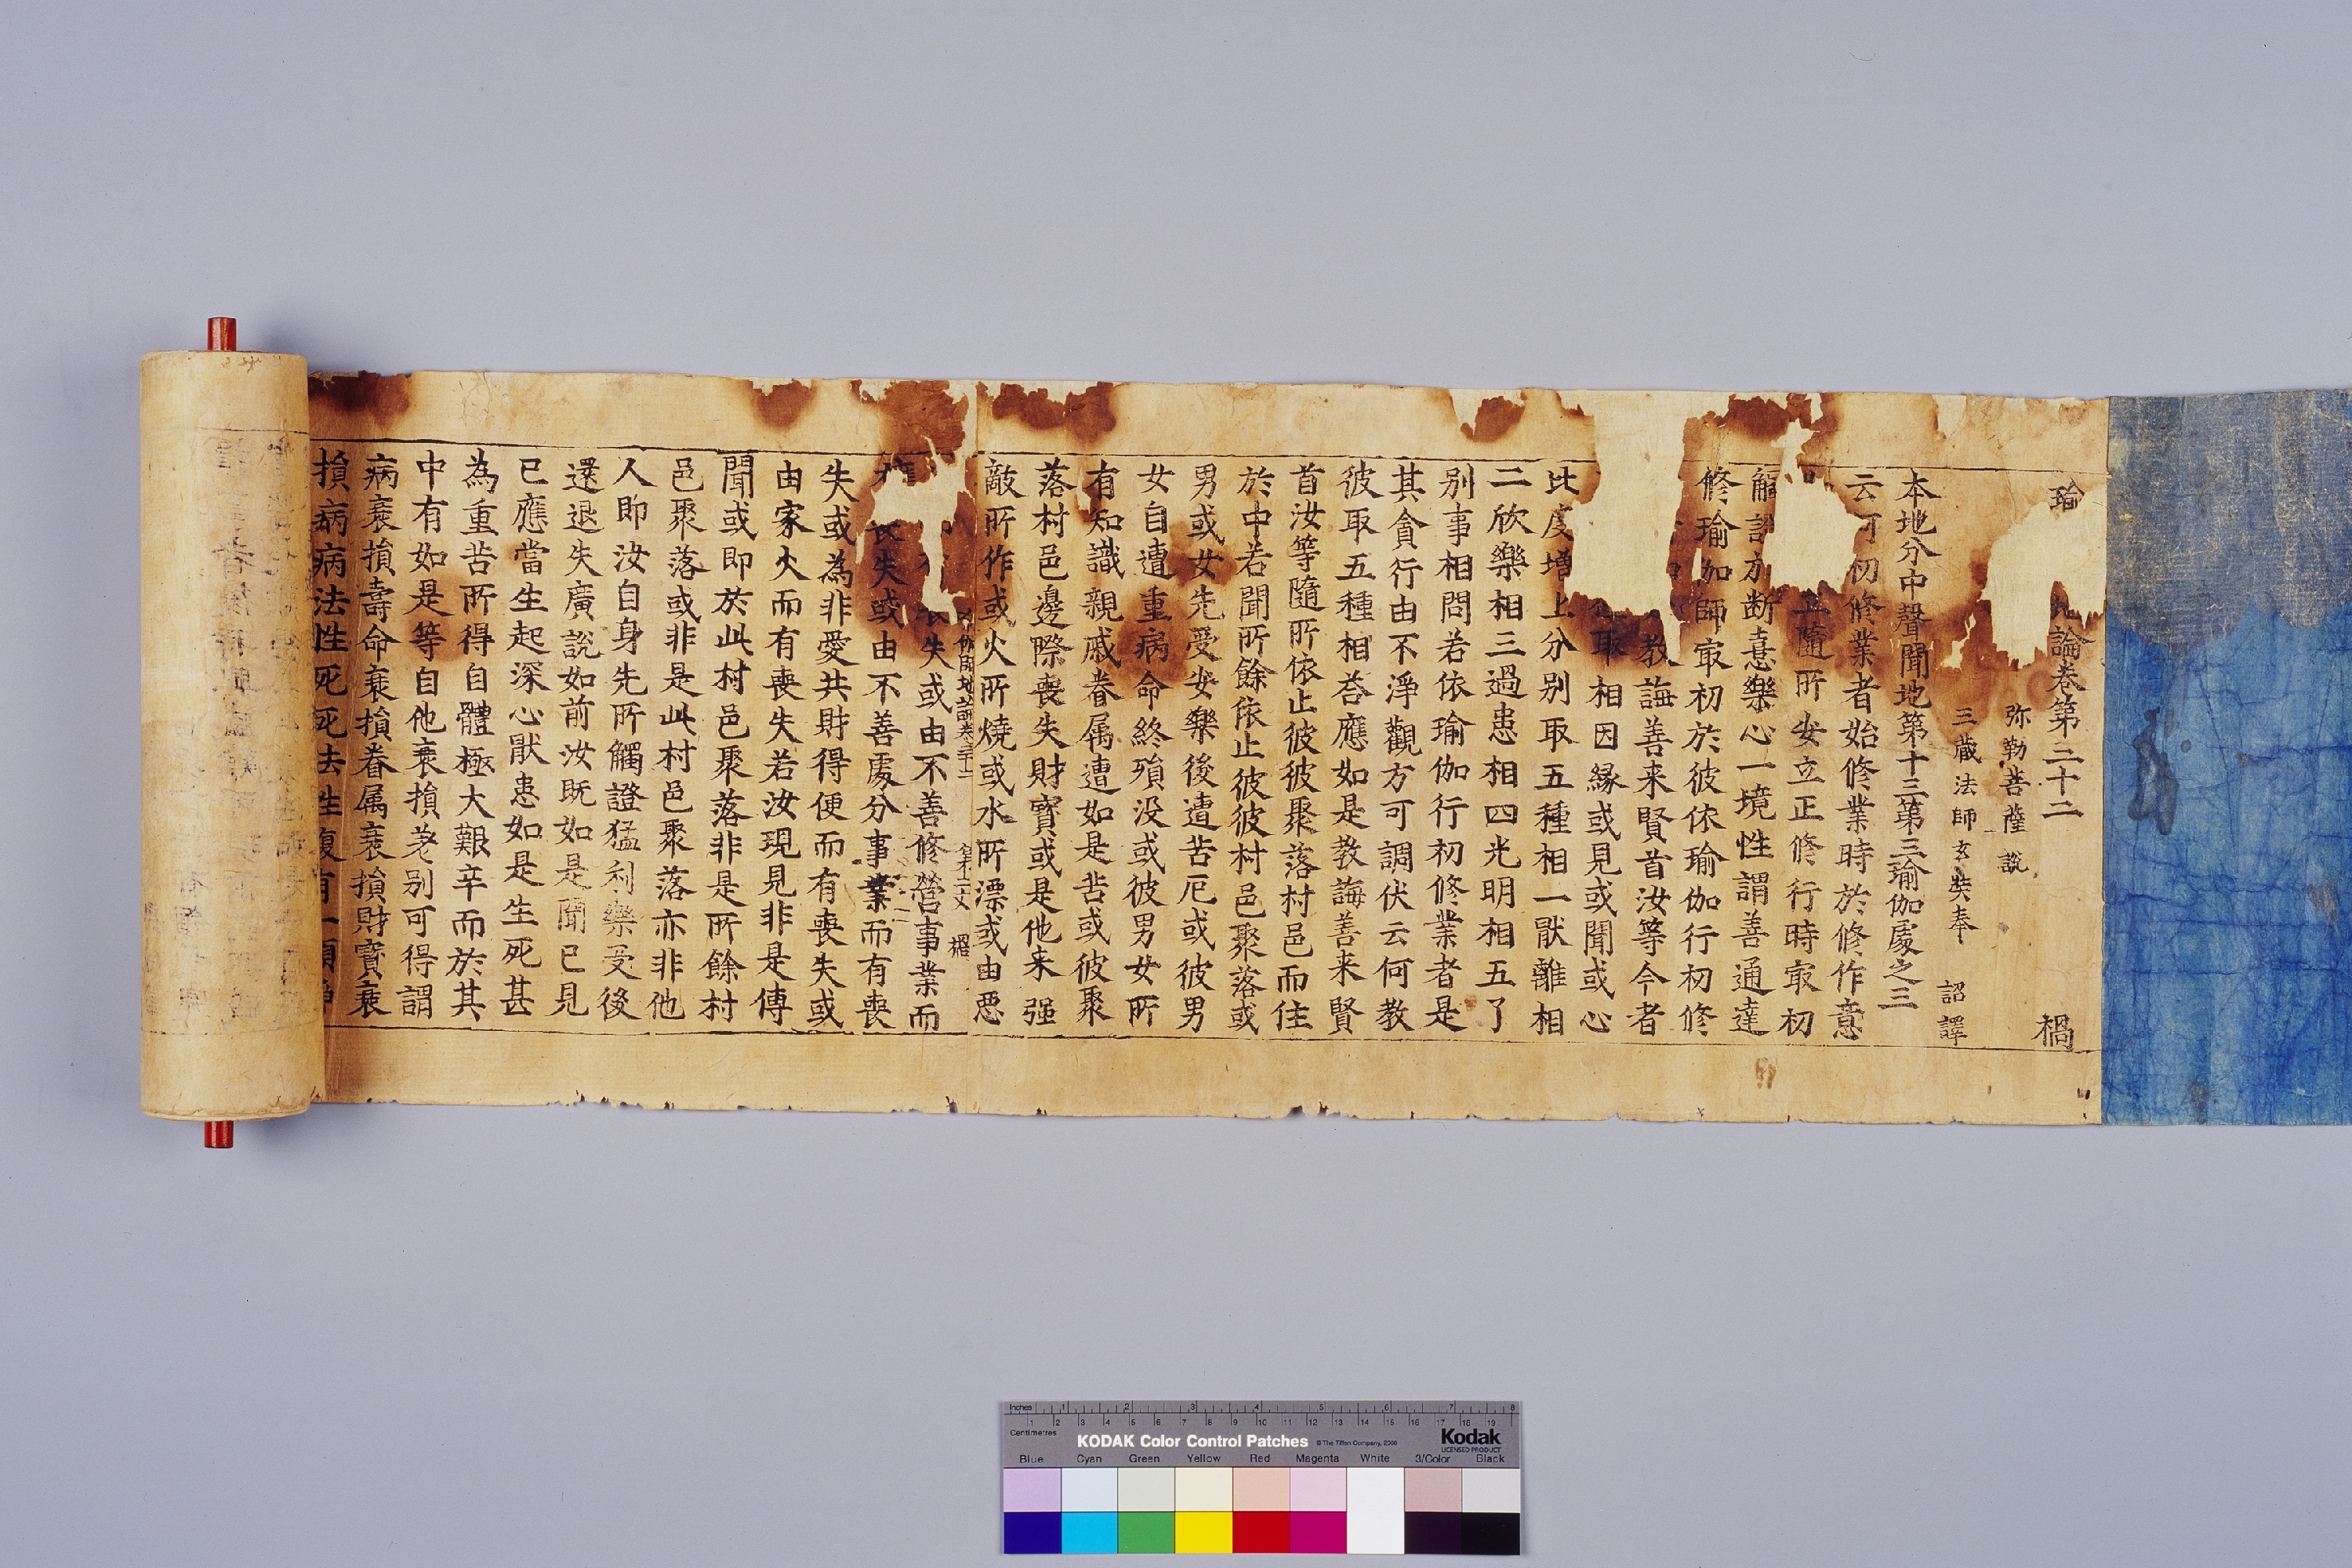 瑜 地論卷第三十二 禍
弥勒菩薩 說
三藏法師玄奘奉 詔譯
本地分中聲聞地第十三第三瑜伽處之三
云何初修業者始修業時於修作意
隨所安立正修行時㝡初
觸證於斷憙樂心一境性謂善通達
修瑜伽師㝡初於彼依瑜伽行初修
教誨善来賢首汝等今者
取相因緣或見或聞或心
比度增上分別取五種相一猒離相
二欣樂相三過患相四光明相五了
別事相問若依瑜伽行初修業者是
其貪行由不淨觀方可調伏云何教
彼取五種相荅應如是教誨善来賢
首汝等隨所依止彼彼聚落村邑而住
於中若聞所餘依止彼彼村邑聚落或
男或女先受安樂後遭苦厄或彼男
女自遭重病命終殞没或彼男女所
有知識親戚眷属遭如是苦或彼聚
落村邑邊際喪失財寶或是他来强
敵所作或火所燒或水所漂或由惡
瑜伽師地論卷三十二 第二丈 禍
喪失或由不善修營事業而
喪失或由不善處分事業而有喪
失或為非愛共財得便而有喪失或
由家火而有喪失若汝現見非是傳
聞或即於此村邑聚落非是所餘村
邑聚落或非是此村邑聚落亦非他
人即汝自身先所觸證猛利樂受後
還退失廣說如前汝既如是聞已見
已應當生起深心猒患如是生死甚
為重苦所得自體極大艱辛而於其
中有如是等自他衰損差別可得謂
病衰損壽命衰損眷属衰損財寶衰
損病病法性死死法性復有一類淨